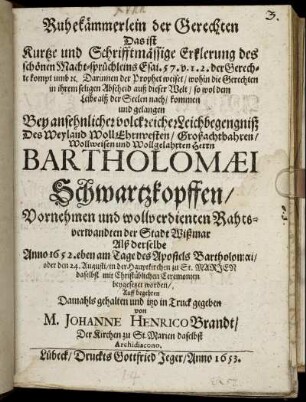 3.
Ruhekämmerlein der Gerechten
Das ist
Kurtze und Schrifftmässige Erklerung des
schönen Macht-sprüchleins Esai. 57. v. 1. 2. der Gerech-
te kompt umb ꝛc. Darinnen der Prophet weiset / wohin die Gerechten
in ihrem seligen Abscheid auß dieser Welt / so wol dem
Leibe alß der Seelen nach / kommen
und gelangen
Bey ansehnlicher volckreicher Leichbegengniß
Des Weyland WollEhrnvesten / Großachtbahren /
Wollweisen und Wollgelahrten Herrn
BARTHOLOMÆI
Schwartzkopffen /
Vornehmen und wollverdienten Rahts-
verwandten der Stadt Wißmar
Alß derselbe
Anno 1652. eben am Tage des Apostels Bartholomæi /
oder den 24. Augusti / in der Hauptkirchen zu St. MARIEN
daselbst mit Christüblichen Ceremonien
beygesetzet worden /
Auff begehren
Damahls gehalten und itzo in Truck gegeben
von
M. JOHANNE HENRICO Brandt /
Der Kirchen zu St. Marien daselbst
Archidiacono.
Lübeck / Druckts Gottfried Jeger / Anno 1653.